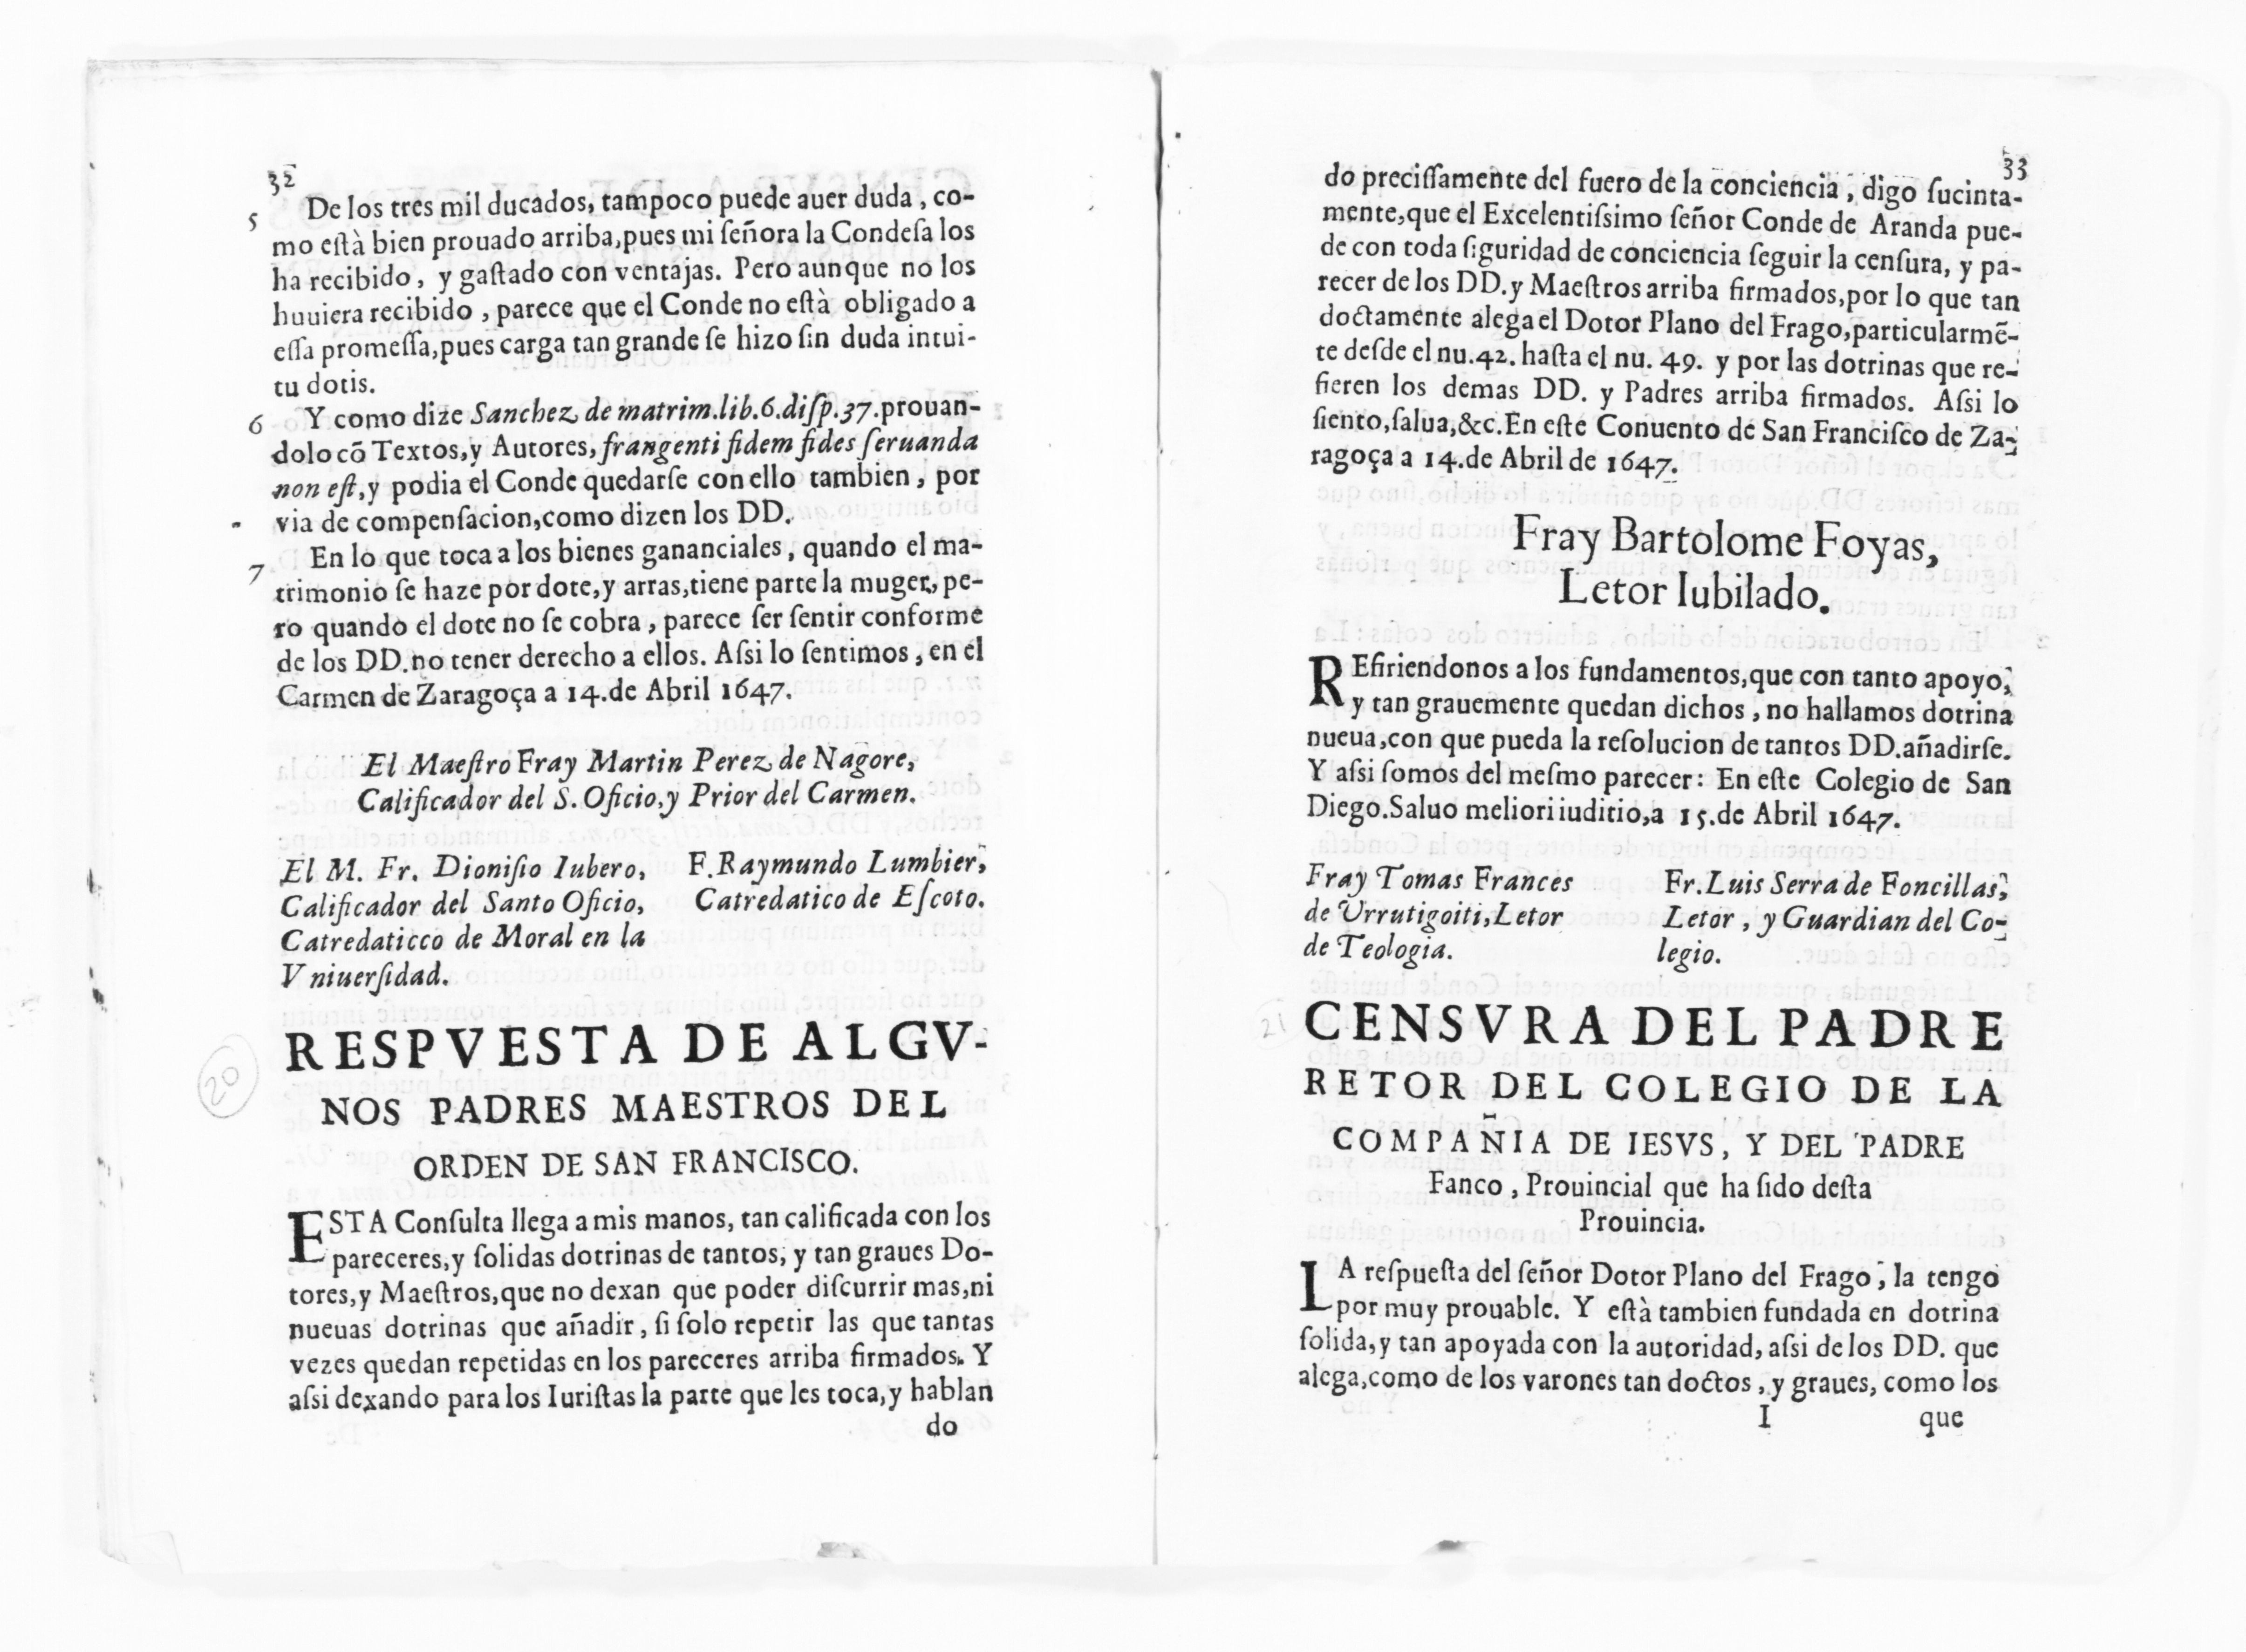 32
5 De los tres mil ducados, tampoco puede auer duda, co-
mo està bien prouado arriba, pues mi señora la Condesa los
ha recibido, y gastado con ventajas. Pero aunque no los
huuiera recibido, parece que el Conde no està obligado a
essa promessa, pues carga tan grande se hizo sin duda intui-
tu dotis.
6 Y como dize Sanchez de matrim.lib.6.disp.37.prouan-
dolo cõ Textos, y Autores, frangenti fidem fides seruanda
non est, y podia el Conde quedarse con ello tambien, por
via de compensacion, como dizen los DD.
7 En lo que toca a los bienes gananciales, quando el ma-
trimonio se haze por dote, y arras, tiene parte la muger, pe-
ro quando el dote no se cobra, parece ser sentir conforme
de los DD. no tener derecho a ellos. Assi lo sentimos, en el
Carmen de Zaragoça a 14. de Abril 1647.
El Maestro Fray Martin Perez de Nagore,
Calificador del S. Oficio, y Prior del Carmen.
El M. Fr. Dionisio Iubero,
Calificador del Santo Oficio,
Catredaticco de Moral en la
Vniuersidad.
F. Raymundo Lumbier,
Catredatico de Escoto.
20
RESPVESTA DE ALGV-
NOS PADRES MAESTROS DEL
ORDEN DE SAN FRANCISCO.
ESTA Consulta llega a mis manos, tan calificada con los
pareceres, y solidas dotrinas de tantos, y tan graues Do-
tores, y Maestros, que no dexan que poder discurrir mas, ni
nueuas dotrinas que añadir, si solo repetir las que tantas
vezes quedan repetidas en los pareceres arriba firmados. Y
assi dexando para los Iuristas la parte que les toca, y hablan
do
33
do precissamente del fuero de la conciencia, digo sucinta-
mente, que el Excelentissimo señor Conde de Aranda pue-
de con toda siguridad de conciencia seguir la censura, y pa-
recer de los DD. y Maestros arriba firmados, por lo que tan
doctamente alega el Dotor Plano del Frago, particularmẽ-
te desde el nu.42. hasta el nu. 49. y por las dotrinas que re-
fieren los demas DD. y Padres arriba firmados. Assi lo
siento, salua, &c. En este Conuento de San Francisco de Za-
ragoça a 14. de Abril de 1647.
Fray Bartolome Foyas,
Letor Iubilado.
REfiriendonos a los fundamentos, que con tanto apoyo,
y tan grauemente quedan dichos, no hallamos dotrina
nueua, con que pueda la resolucion de tantos DD. añadirse.
Y assi somos del mesmo parecer: En este Colegio de San
Diego. Saluo meliori iuditio, a 15. de Abril 1647.
Fray Tomas Frances
de Vrrutigoiti, Letor
de Teologia.
Fr. Luis Serra de Foncillas,
Letor, y Guardian del Co-
legio.
21
CENSVRA DEL PADRE
RETOR DEL COLEGIO DE LA
COMPAÑIA DE IESVS, Y DEL PADRE
Fanco, Prouincial que ha sido desta
Prouincia.
LA respuesta del señor Dotor Plano del Frago, la tengo
por muy prouable. Y està tambien fundada en dotrina
solida, y tan apoyada con la autoridad, assi de los DD. que
alega, como de los varones tan doctos, y graues, como los
I que